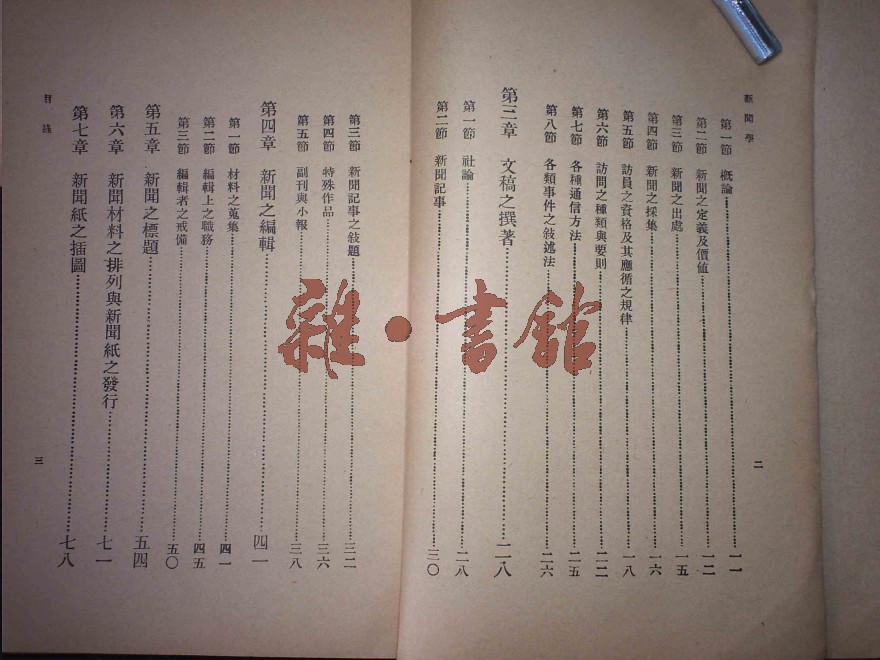 新聞學
第一節 概論 一一
第二節 新聞之定義及價値 一二
第三節 新聞之出處 一五
第四節 新聞之採集 一六
第五節 訪員之資格及其應循之規律 一八
第六節 訪問之種類與要則 二二
第七節 各種通信方法 二五
第八節 各類事件之敍述法 二六
第三章 文稿之撰著 二八
第一節 社論 二八
第二節 新聞記事 三〇
二
第三節 新聞記事之敍題 三二
第四節 特殊作品 三六
第五節 副刊與小報 三八
第四章 新聞之編輯 四一
第一節 材料之蒐集 四一
第二節 編輯上之職務 四五
第三節 編輯者之戒備 五〇
第五章 新聞之標題 五四
第六章 新聞材料之排列與新聞紙之發行 七一
第七章 新聞紙之插圖 七八
目錄
三
雜·書館